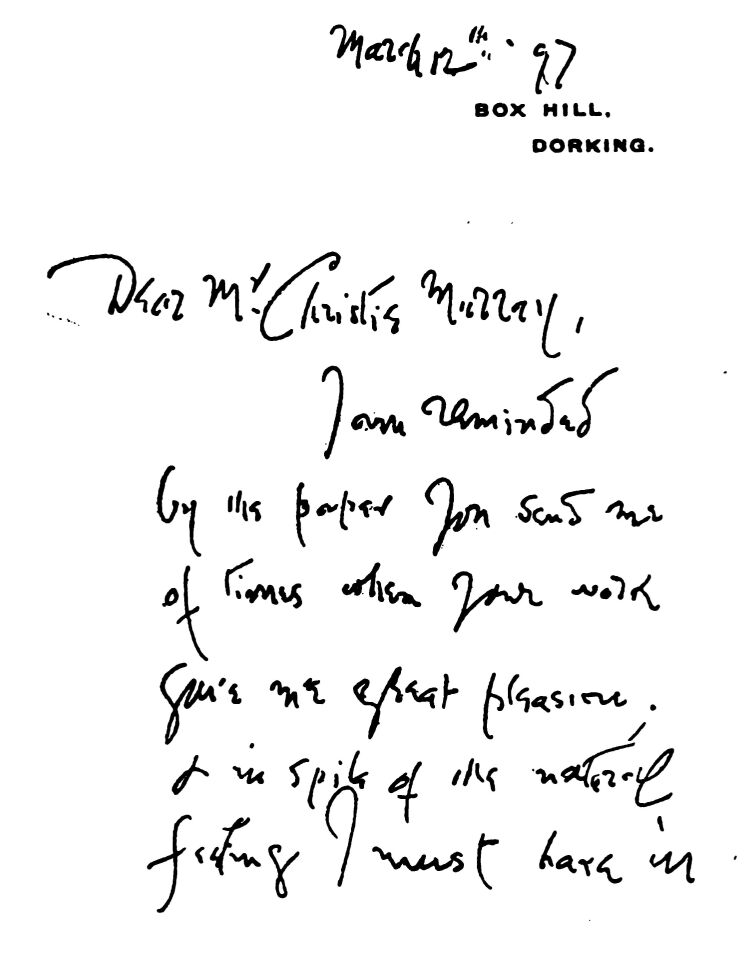 March 12th. 97
BOX HILL,
DORKING.
Dear Mr. Christie Murray,
I am reminded
by the paper you send me
of times when your work
gave me great pleasure.
& in spite of the natural
feeling I must have in